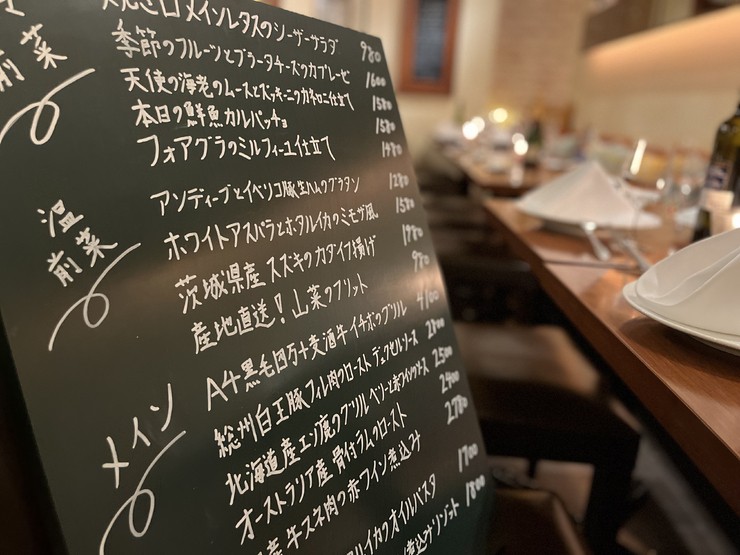 前菜
焼き白メインレタスのシーザーサラダ 980
季節のフルーツとブラータチーズのカプレーゼ 1600
天使の海老のムースとズッキーニのカネロニ仕立て 1580
本日の鮮魚カルパッチョ 1580
フォアグラのミルフィーユ仕立て 1480
温前菜
アンディーブとイベリコ豚生ハムのグラタン 1280
ホワイトアスパラとホタルイカのミモザ風 1580
茨城県産スズキのカダイフ揚げ 1980
産地直送!山菜のフリット 980
メイン
A4黒毛四万十麦酒牛イチボのグリル 4100
総州白王豚フィレ肉のロースト デュクセルソース 2800
北海道産エゾ鹿のグリル ベリーと赤ワインソース 2500
オーストラリア産骨付ラムのロースト 2400
産牛スネ肉の赤ワイン煮込み 2780
ルイカのオイルパスタ 1700
煮込みリゾット 1800